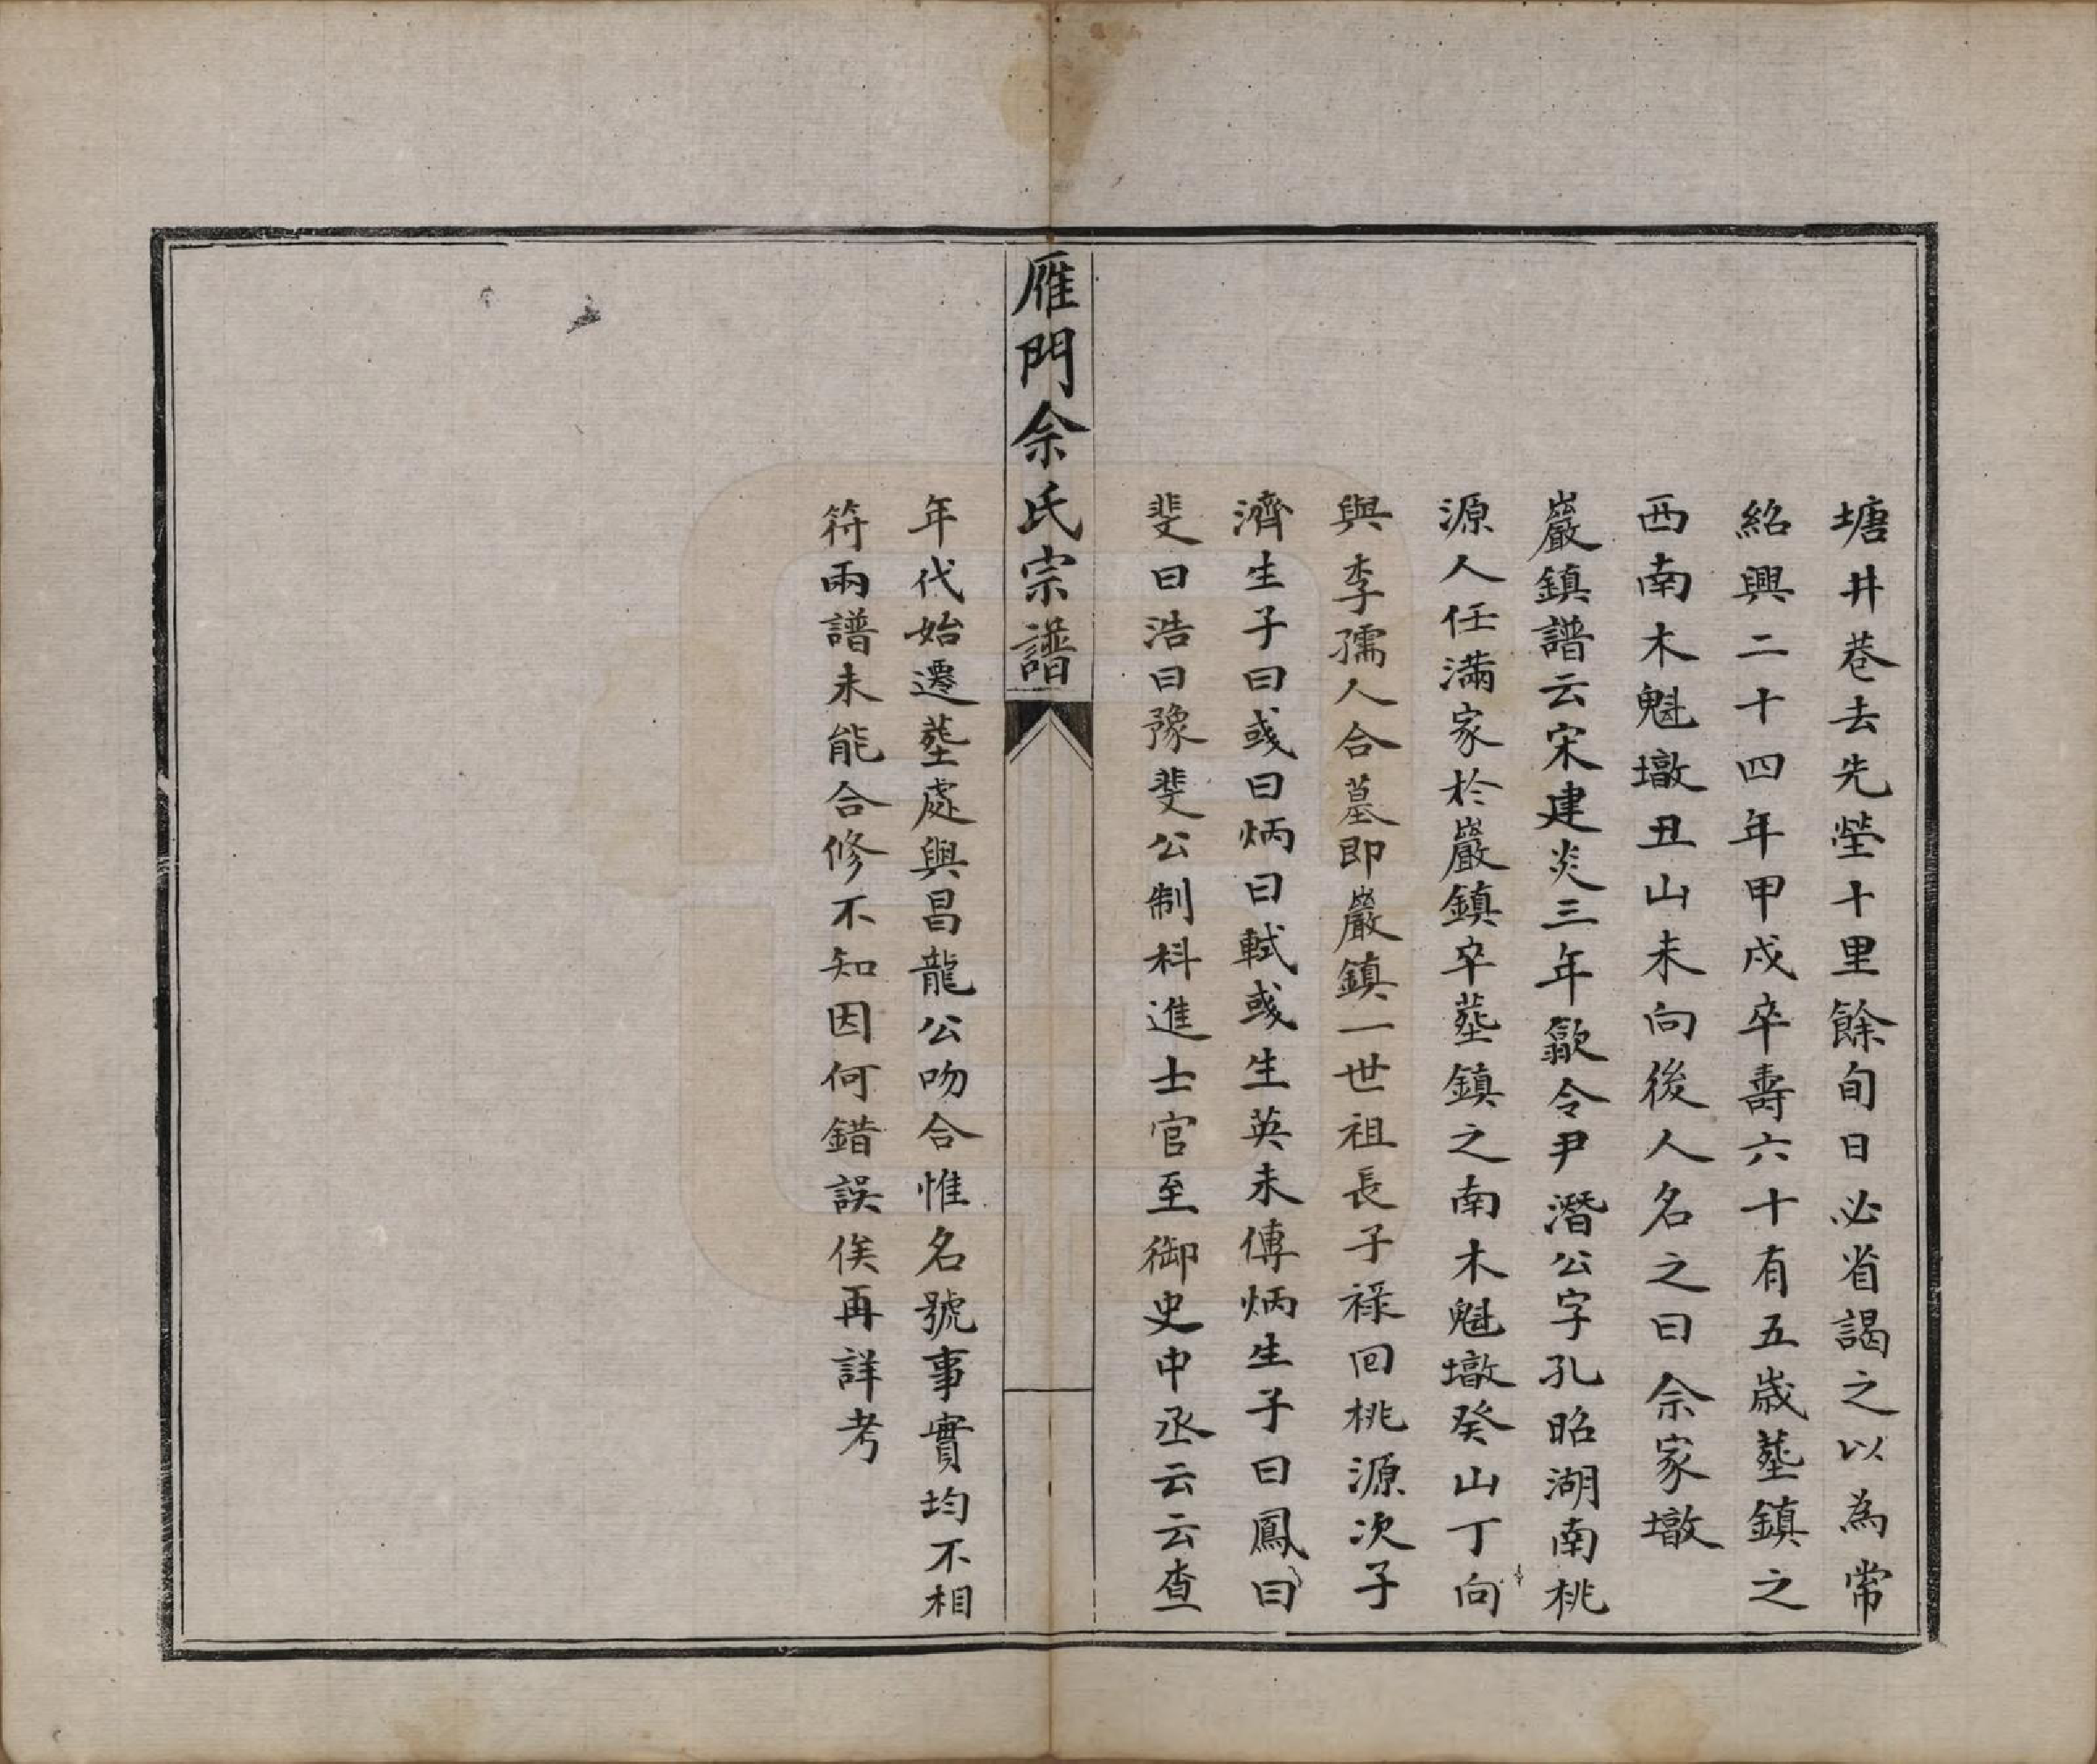 塘井巷去先塋十里餘旬日必省謁之以為常
紹興二十四年甲戌卒壽六十有五歲塟鎮之
西南木魁墩丑山未向後人名之曰佘家墩
巖鎮譜云宋建炎三年歙令尹潛公字孔昭湖南桃
源人任滿家於巖鎮卒塟鎮之南木魁墩癸山丁向
與李孺人合墓即巖鎮一世祖長子祿回桃源次子
濟生子曰彧曰炳曰軾彧生英未傳炳生子曰鳳曰
斐曰浩曰豫斐公制科進士官至御史中丞云云查
雁門佘氏宗譜
年代始遷塟處與昌龍公吻合惟名號事實均不相
符兩譜未能合修不知因何錯誤俟再詳考